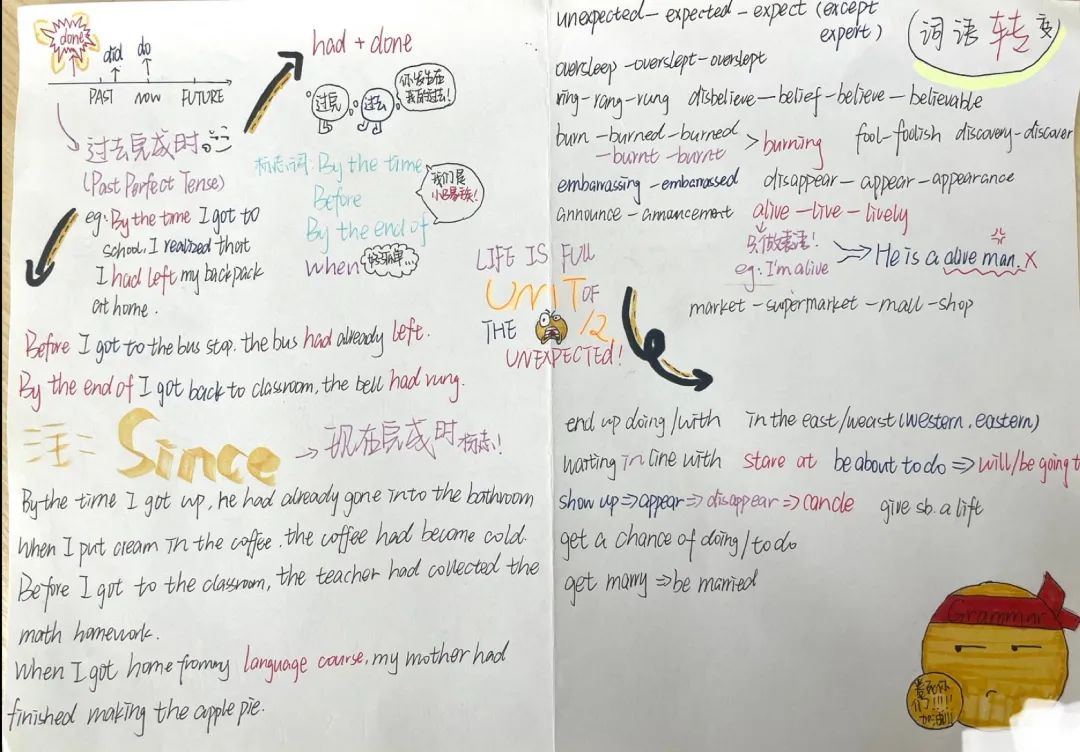 done
did do
PAST now FUTURE
过去完成时
(Past Perfect Tense)
eg: By the time I got to
school, I realized that
I had left my backpack
at home.
had + done
过完 过去
你发生在
我的过去!
标志词: By the time
Before
By the end of
when
我们是
Before I got to the bus stop. the bus had already left.
By the end of I got back to classroom, the bell had rung.
注 Since → 现在完成时 标志!
By the time I got up, he had already gone into the bathroom
When I put cream in the coffee. the coffee had become cold.
Before I got to the classroom, the teacher had collected the
math homework.
When I got home from my language course, my mother had
finished making the apple pie.
LIFE IS FULL
UNIT OF
THE 12
UNEXPECTED!
unexpected - expected - expect (except
expert)
词语转变
oversleep - overslept - overslept
ring - rang - rung disbelieve - belief - believe - believable
burn - burned - burned > burning fool - foolish discovery - discover
- burnt - burnt
embarrassing - embarrassed disappear - appear - appearance
announce - amancement alive - live - lively
只做表语!
eg: I'm alive ⇒ He is a alive man. ×
market - supermarket - mall - shop
end up doing /with in the east/weast (western, eastern)
waiting in line with stare at be about to do ⇒ will/be going t
show up ⇒ appear ⇒ disappear ⇒ cancle give sb. a lift
get a chance of doing / to do
get marry ⇒ be married
Grammar
加油!!!